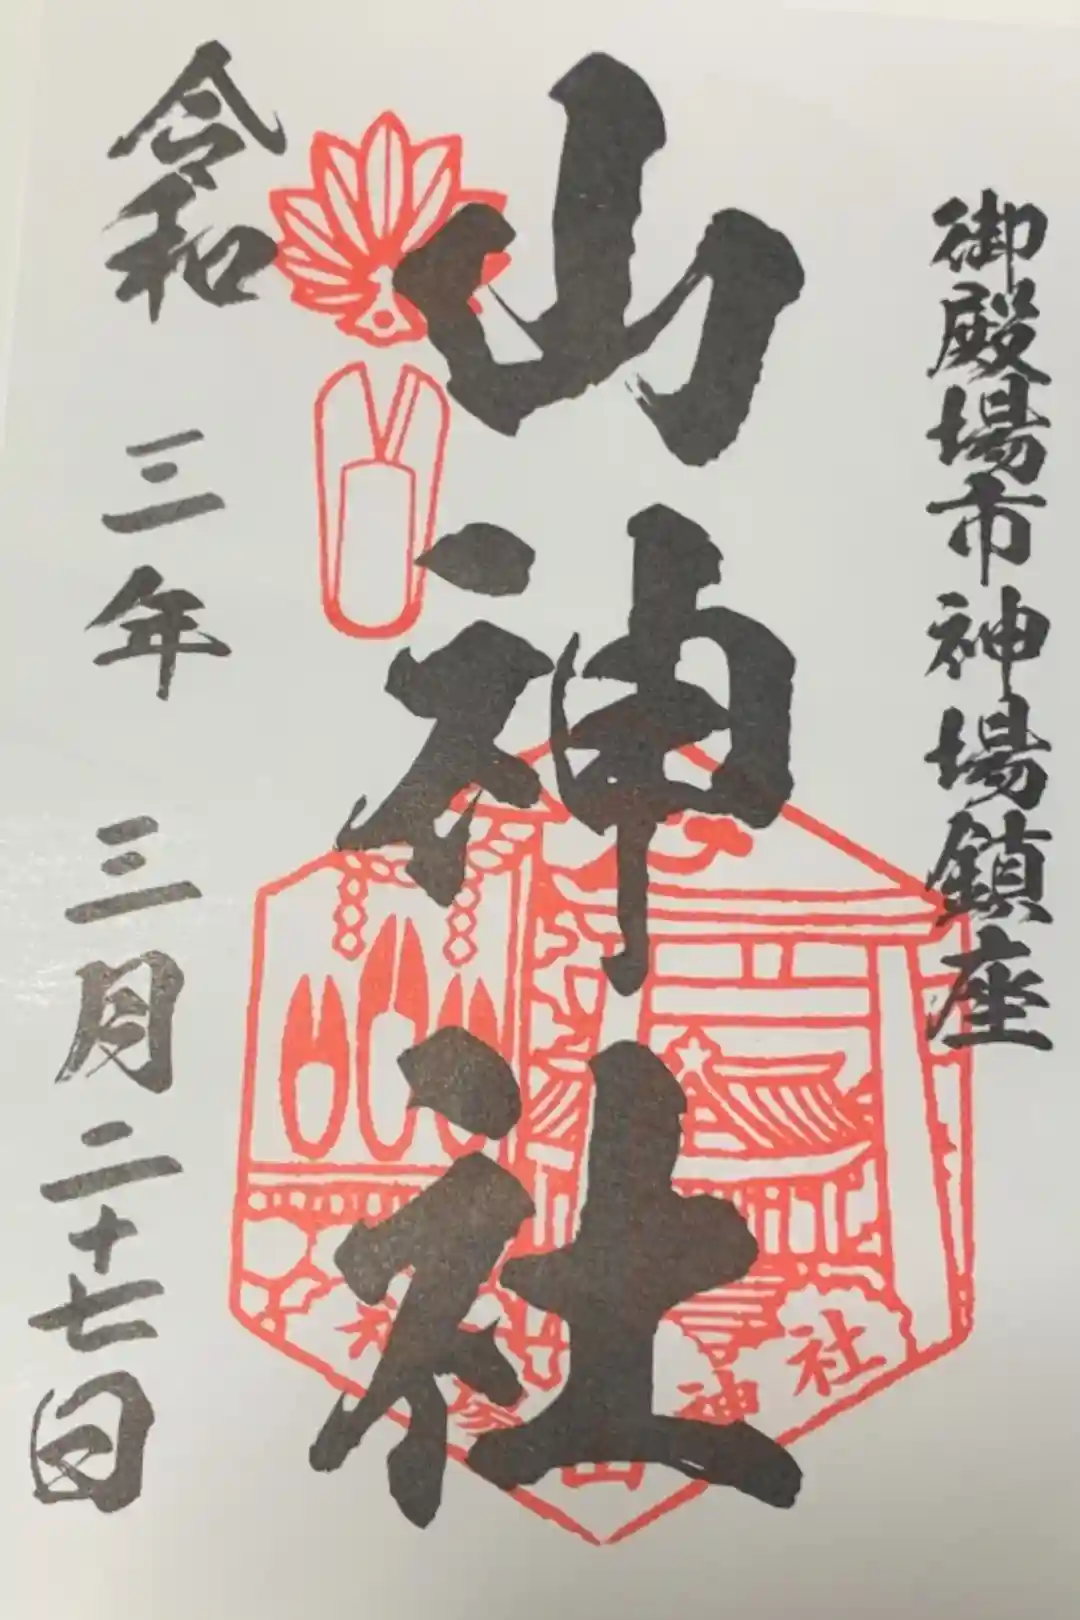 御殿場市神場鎮座
山神社
令和三年三月二十七日
神場山神社